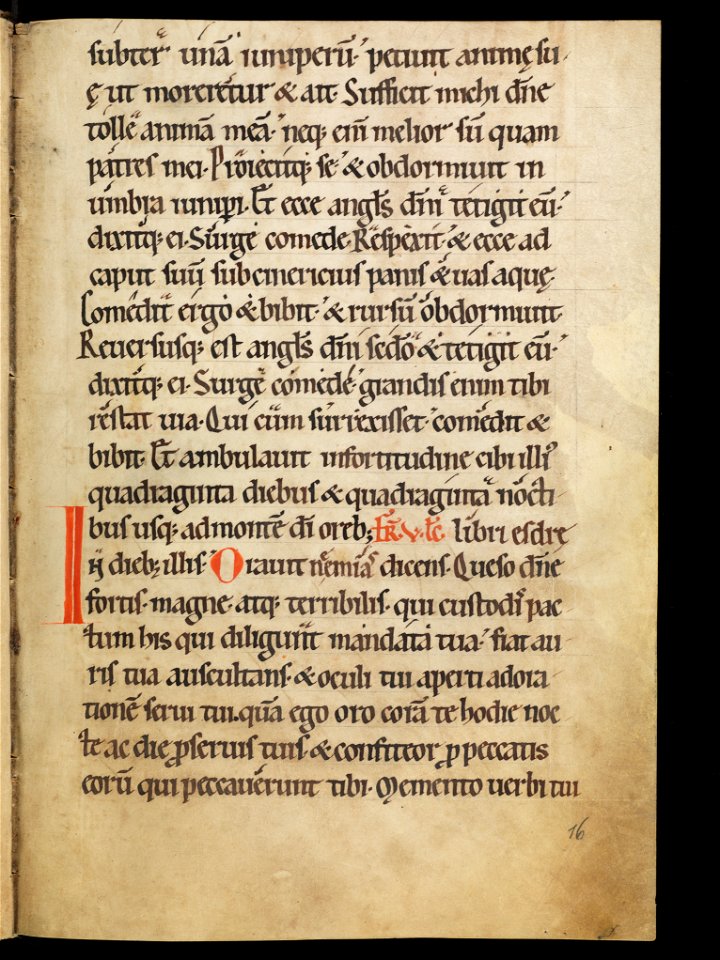 subter unā iuniperū petiuit animę su
ę ut moreretur & ait. Sufficit michi dn̄e
tolle animā meā neq; eni͞ melior sū quam
patres mei. Proiecitq; se & obdormiuit in
umbra iunip̲i. Et ecce angl̄s dn̄i tetigit eū
dixitq; ei. Surge comede. Respexit & ecce ad
caput suū subcinericius panis & uas aquę.
Comedit ergo & bibit & rursū obdormiuit.
Reuersusq; est angl̄s dn̄i sedō & tetigit eū
dixitq; ei. Surge comede grandis enim tibi
restat uia. Qui cum surrexisset comedit &
bibit. Et ambulauit infortitudine cibi illiꝰ
quadraginta diebus & quadraginta nocti
bus usq; ad montē dī oreb; fr̄. v. lc̄ libri esdrę
In dieb; illis. Orauit neemias dicens. Queso dn̄e
fortis. magne. atq; terribilis. qui custodis pac
tum his qui diligunt mandata tua fiat au
ris tua auscultans. & oculi tui aperti ad ora
tionē serui tui. quā ego oro corā te hodie noc
te ac die ꝓ seruis tuis & confiteor ꝓ peccatis
eorū qui peccauerunt tibi. Memento uerbi tui
16